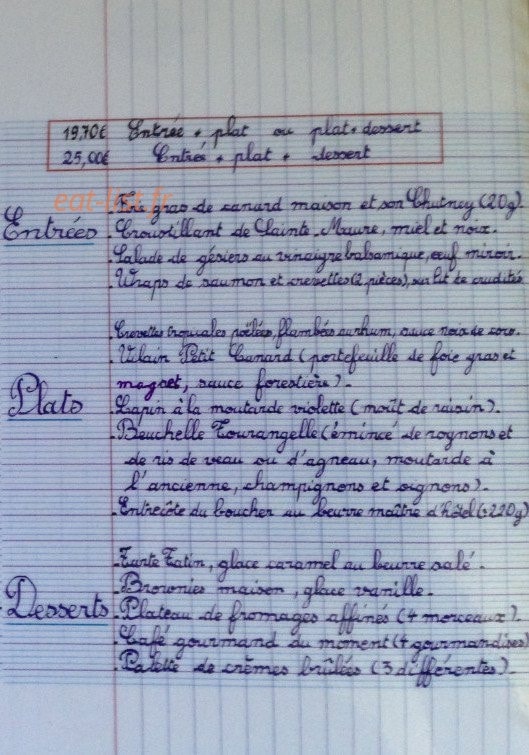 19,70€ Entrée + plat ou plat + dessert
25,00€ Entrée + plat + dessert
eat-list.fr
Entrées
. Foie gras de canard maison et son Chutney (20g).
. Croustillant de Sainte Maure, miel et noix.
. Salade de gésiers au vinaigre balsamique, œuf miroir.
. Wraps de saumon et crevettes (2 pièces), sur lit de crudités
Plats
. Crevettes tropicales poêlées, flambées au rhum, sauce noix de coco.
. Vilain Petit Canard (portefeuille de foie gras et
magret, sauce forestière).
. Lapin à la moutarde violette (moût de raisin).
. Beuchelle Tourangelle (émincé de rognons et
de ris de veau ou d'agneau, moutarde à
l'ancienne, champignons et oignons).
. Entrecôte du boucher au beurre maître d'hôtel (220g)
Desserts
. Tarte Tatin, glace caramel au beurre salé.
. Brownies maison, glace vanille.
. Plateau de fromages affinés (4 morceaux).
. Café gourmand du moment (4 gourmandises)
. Palette de crèmes brûlées (3 différentes).